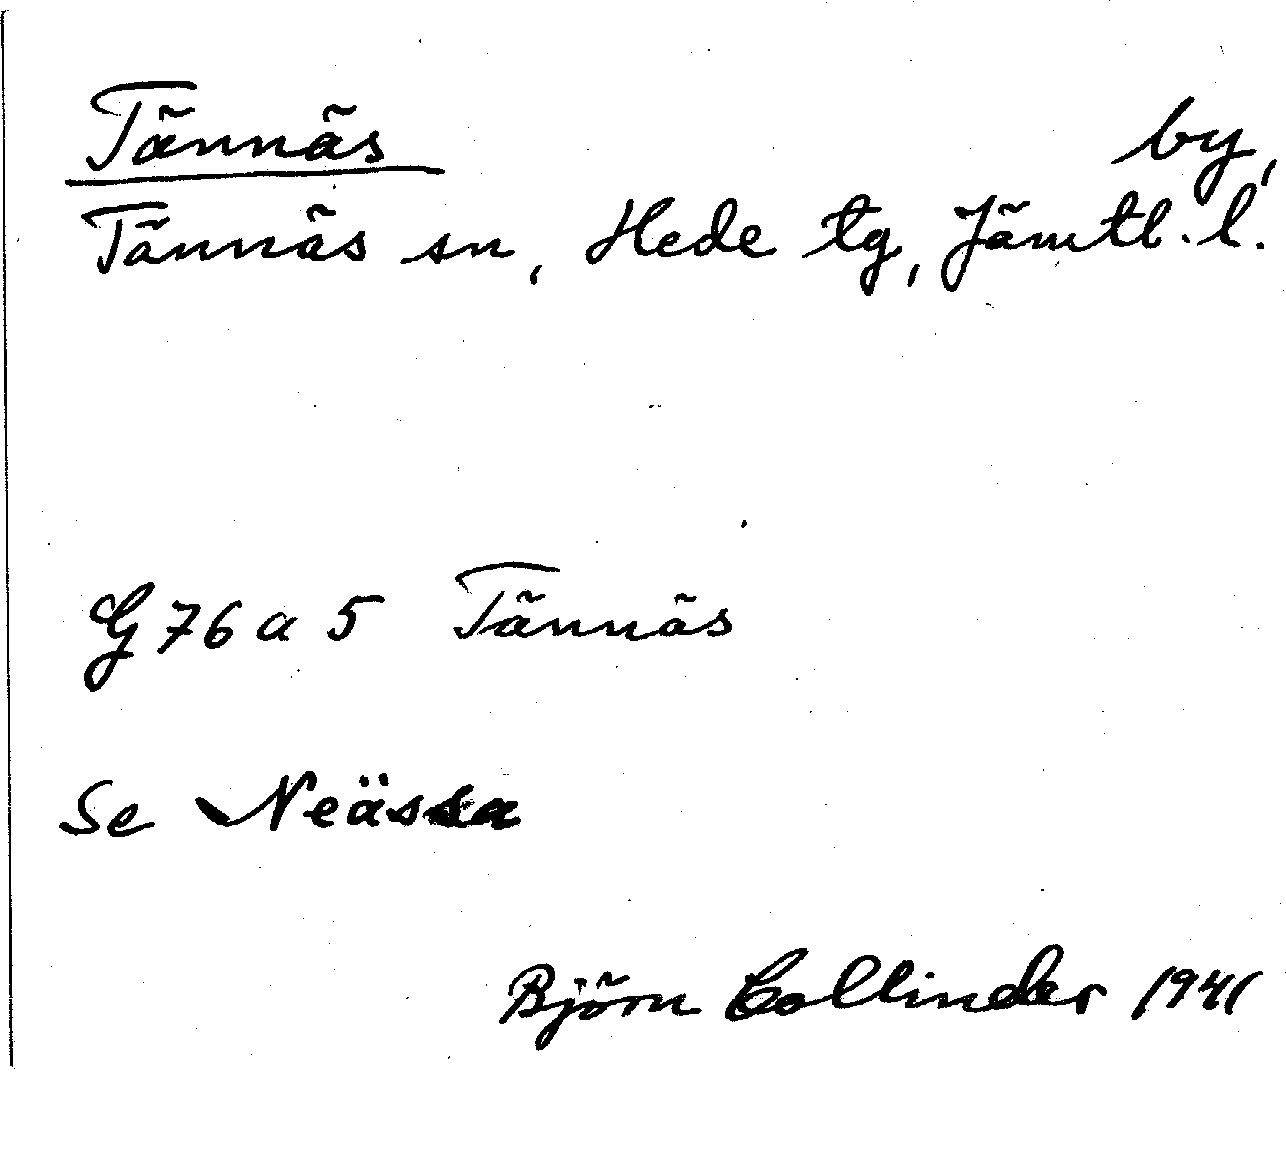 Tännäs by,
Tännäs sn, Hede tg, Jämtl. l.
G 76 a 5 Tännäs
Se Neässa
Björn Collinder 1941